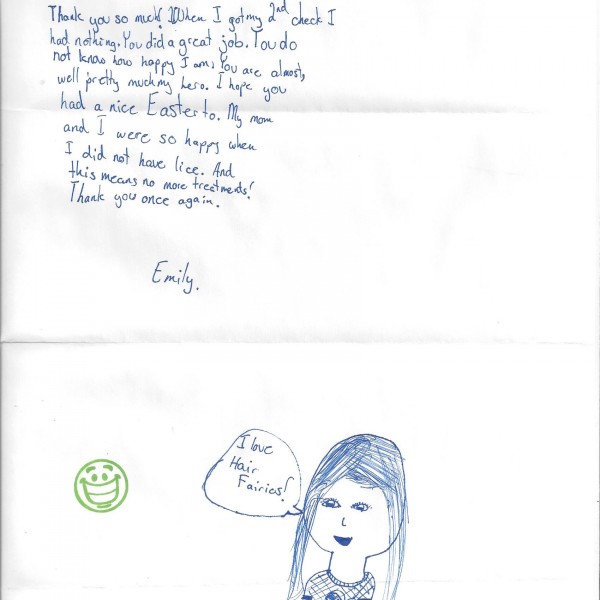 Thank you so much! When I got my 2nd check I
had nothing. You did a great job. You do
not know how happy I am. You are almost,
well pretty much my hero. I hope you
had a nice Easter to. My mom
and I were so happy when
I did not have lice. And
this means no more treatments!
Thank you once again.
Emily.
I love
Hair
Fairies!